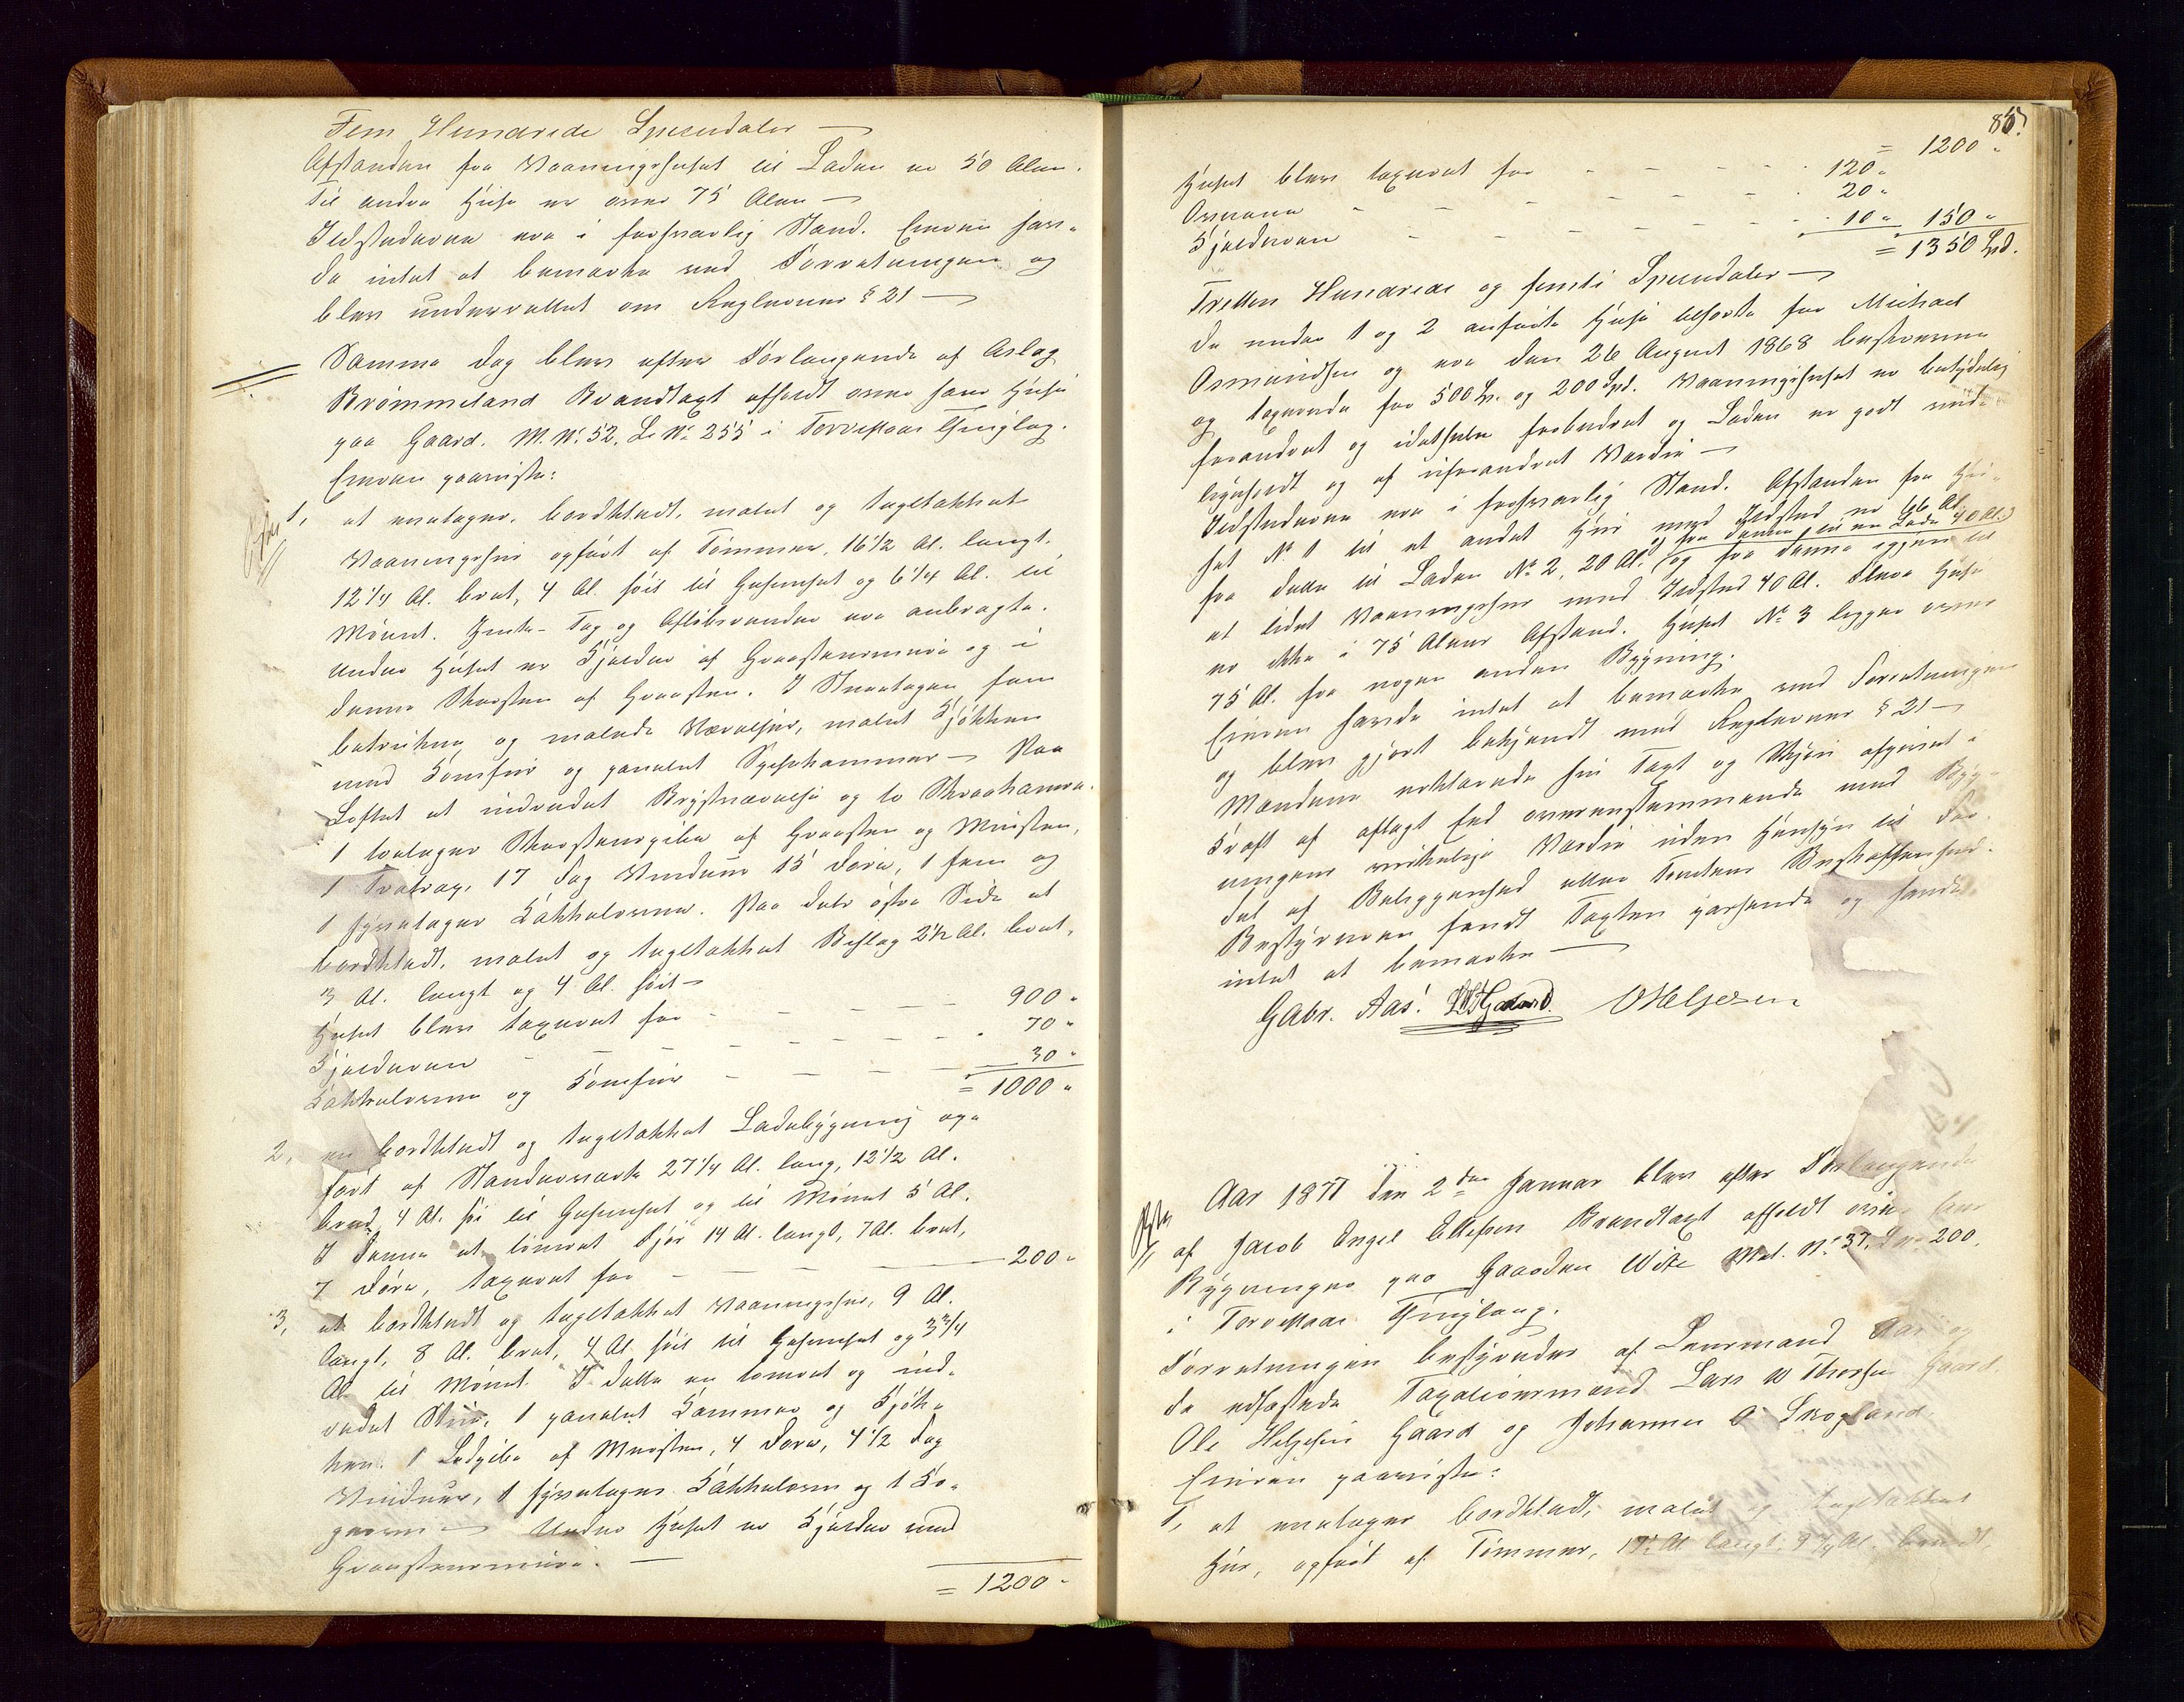 Fem Hundrede Speciedaler —
Afstanden fra Vaaningshuset til Laden er 50 Alen.
Til andre Huse er over 75 Alen —
Ildstederne ere i forsvarlig Stand. Eieren hav-
de intet at bemærke ved Forretningen og
blev underrettet om Reglernes § 21 —
Samme Dag blev efter Forlangende af Aslag
Brømmeland Brandtaxt afholdt over hans Huse
paa Gaard. M. No. 52, L. No. 255 i Torvestad Thinglag.
Eieren paaviste:
1, et enetages, bordklædt, malet og tagltækket
Vaaningshus opført af Tømmer, 16 1/2 Al. langt,
12 1/4 Al. bret, 4 Al. høit til Gesimset og 6 1/4 Al. til
Mønnet. Hvide- Tag og Afløbsrender ere anbragte.
Under Huset er Kjelder af Graastensmure og i
denne Skorsten af Graasten. I Stueetagen fem
betrukne og malede Værelser, malet Kjøkken
med Komfur og panelet Spisekammer — Paa
Loftet et indredet Kvistværelse og to Skraakamre.
1 toetages Skorstenspibe af Graasten og Mursten,
1 Svaltrap, 17 Fag Vinduer 15 Døre, 1 fem og
1 fyretages Kakkelovne. Paa dets østre Side et
bordklædt, malet og tagltækket Bislag 2 1/2 Al. bret,
3 Al. langt og 4 Al. høit —
Huset blev taxeret for - - - 900 "
Kjelderen - - - - - - 70 "
Kakkelovne og Komfur - - - 30 "
= 1000 "
2, en bordklædt og tagltækket Ladebygning op-
ført af Stendervaerk 27 1/4 Al. lang, 12 1/2 Al.
bred, 4 Al. høi til Gesimset og til Mønnet 5 Al.
I denne et tømret Fjøs 14 Al. langt, 7 Al. bret,
7 Døre, taxeret for - - - 200 "
3, et bordklædt og tagltækket Vaaningshus, 9 Al.
langt, 8 Al. bret, 4 Al. høit til Gesimset og 3 3/4
Al. til Mønnet. I dette en tømret og ind-
redet Stue, 1 panelet Kammer og Kjøk-
ken. 1 Ladpibe af Mursten, 4 Døre, 4 1/2 Fag
Vinduer, 1 fyretages Kakkelovn og 1 Ko-
geovn — Under Huset er Kjelder med
Graastensmure. —
= 1200 "
85.
= 1200 "
Huset blev taxeret for - - - 120 "
Ovnene - - - - - - 20 "
Kjelderen - - - - - 10 " 150 "
= 1350 Spd.
Tretten Hundrede og femti Speciedaler —
De under 1 og 2 anførte Huse tilhørte før Michael
Osmundsen og ere den 26 August 1868 beskrevne
og taxerede for 500 Sp. og 200 Spd. Vaaningshuset er betydelig
forandret og idethele forbedret og Laden er godt ved-
ligeholdt og af uforandret Værdie —
Ildstederne ere i forsvarlig Stand. Afstanden fra Hu-
set No 1 til et andet Hus med Ildsted er 66 Al.
og fra denne til en Lade 40 Al.)
fra dette til Laden No 2, 20 Al. (og fra denne igjen til
et lidet Vaaningshus med Ildsted 40 Al. Flere Huse
er ikke i 75 Alens Afstand. Huset No 3 ligger over
75 Al. fra nogen anden Bygning.
Eieren havde intet at bemærke ved Forretningen
og blev gjort bekjendt med Reglernes § 21 —
Mændene erklærede sin Taxt og Skjøn afgivet i
Kraft af aflagt Eed overensstemmende med Byg-
ningens virkelige Værdie uden Hensyn til For-
del af Beliggenhed eller Tomtens Beskaffenhed.
Bestyreren fandt Taxten passende og havde
intet at bemærke —
Gabr. Aas. LWT Gaard. OHelgesen
Aar 1871 den 2den Januar blev efter Forlangende
af Jacob Engel Ellefsen Brandtaxt afholdt over hans
Bygninger paa Gaarden Viste Mat. No. 37, L No 200.
i Torvestad Thinglaug.
Forretningen bestyredes af Lensmand Aas og
de edfæstede Taxationsmænd Lars W Thorsen Gaard
Ole Helgesen Gaard og Johannes O Skogland.
Eieren paaviste:
1, et enetages bordklædt, malet og tagltækket
Hus, opført af Tømmer, 17 Al langt, 9 3/4 Al. bredt,